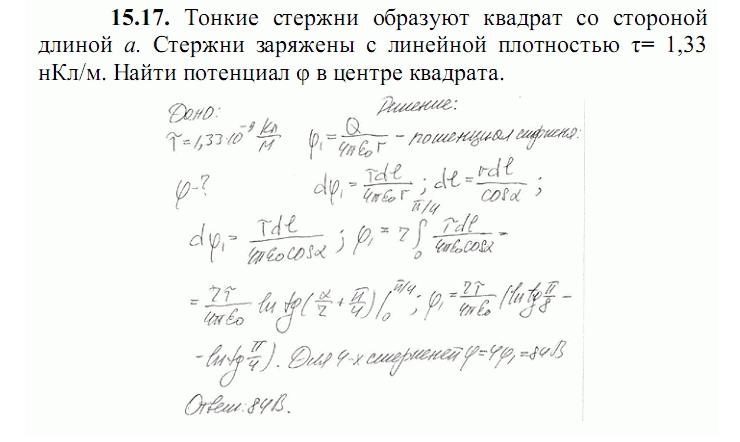 15.17. Тонкие стержни образуют квадрат со стороной
длиной a. Стержни заряжены с линейной плотностью τ= 1,33
нКл/м. Найти потенциал φ в центре квадрата.
Дано:
Решение:
τ=1,33·10⁻⁹ Кл/м
φ₁ = Q/4πε₀r – потенциал стержня.
φ-?
dφ₁ = τdl/4πε₀r ; dl = rdl/cosα ;
dφ₁ = τdl/4πε₀cosα ; φ₁ = 2∫₀^π/4 τdl/4πε₀cosα =
= 2τ/4πε₀ ln tg(α/2 + π/4)|₀^π/4 ; φ₁ = 2τ/4πε₀ (ln tg π/8 –
- ln tg π/4). Для 4-х стержней φ=4φ₁=84В
Ответ: 84В.